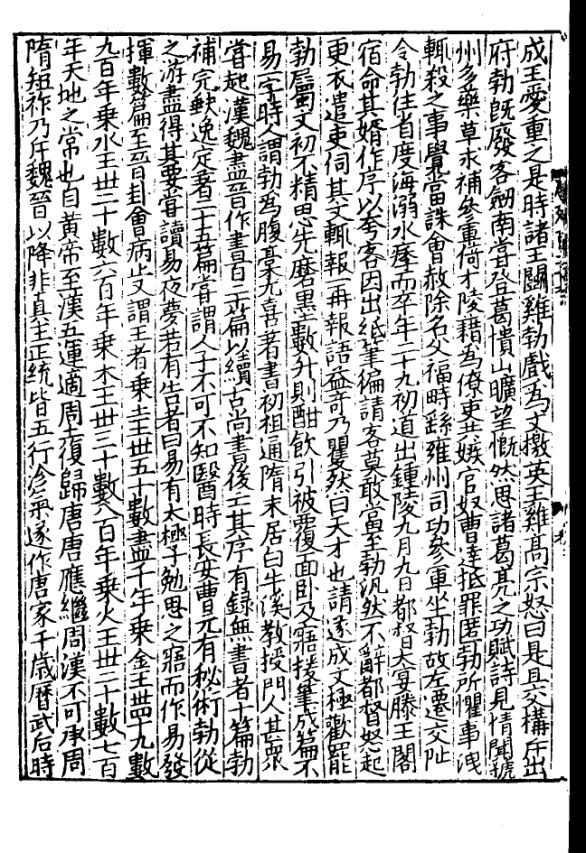 成王愛重之是時諸王鬬雞勃戲爲文檄英王雞髙宗怒曰是且交構斥出
府勃既廢客劒南甞登葛憒山曠望慨然思諸葛亮之功賦詩見情聞虢
州多藥草求補參軍倚才陵藉爲僚吏共嫉官奴曹達抵罪匿勃所懼事洩
輒殺之事覺當誅會赦除名父福畤繇雍州司功參軍坐勃故左遷交阯
令勃往省度海溺水痵而卒年二十九初道出鍾陵九月九日都督大宴滕王閣
宿命其婿作序以夸客因出紙筆徧請客莫敢當至勃汎然不辭都督怒起
更衣遣吏伺其文輒報一再報語益竒乃矍然曰天才也請遂成文極歡罷
勃屬文初不精思先磨墨數升則酣飲引被覆面卧及寤援筆成篇不
易一字時人謂勃爲腹藁尤喜著書初祖通隋末居白牛溪教授門人甚衆
甞起漢魏盡晉作書百二十篇以續古尚書後亡其序有録無書者十篇勃
補完缺逸定著二十五篇甞謂人子不可不知醫時長安曹元有秘術勃從
之游盡得其要甞讀易夜夢若有告者曰易有太極子勉思之寤而作易發
揮數篇至晉卦會病止又謂王者乘土王丗五十數盡千年乘金王丗四十九數
九百年乘水王丗二十數六百年乘木王丗三十數八百年乘火王丗二十數七百
年天地之常也自黃帝至漢五運適周土復歸唐唐應繼周漢不可承周
隋短祚乃斥魏晉以降非真主正統皆五行沴氣遂作唐家千歳曆武后時